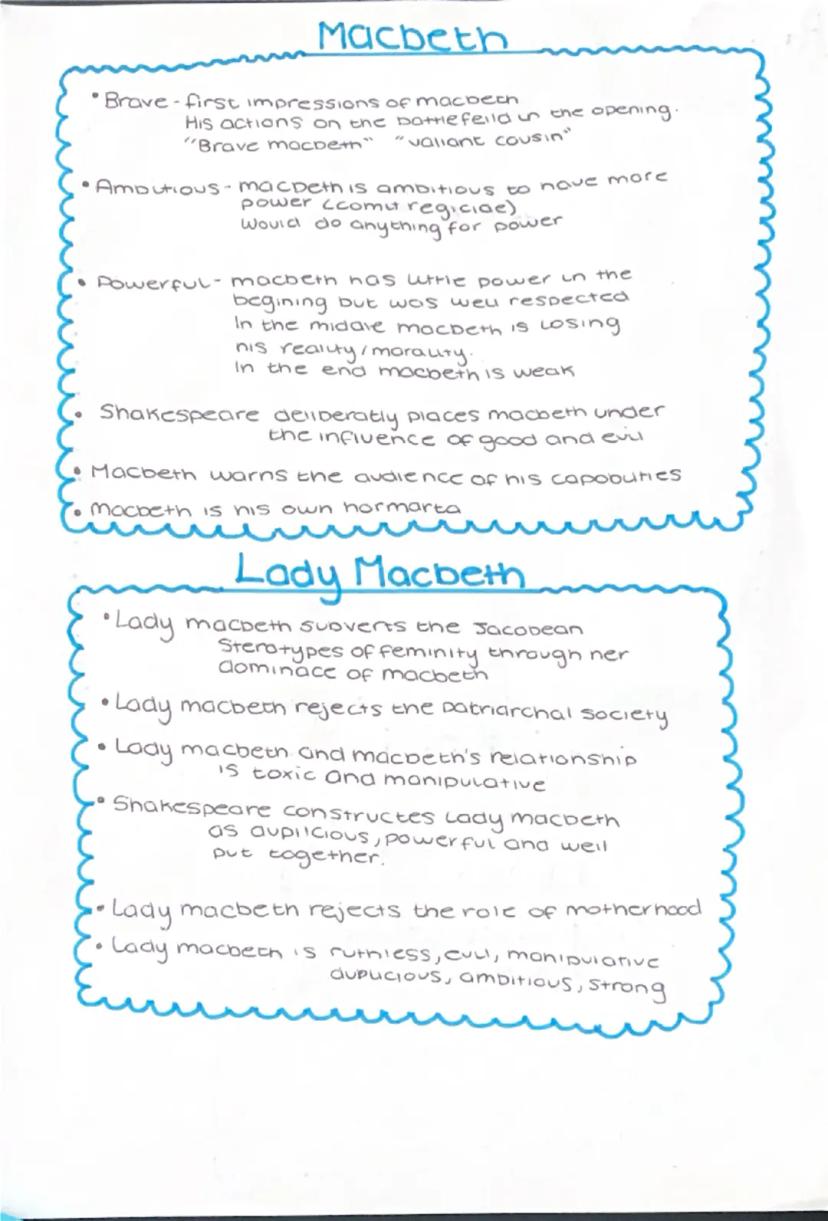 Macbeth
• Brave - first impressions of macbeth
His actions on the battlefeild in the opening.
"Brave macbeth" "valiant cousin"
• Ambitious - macbeth is ambitious to have more
power (comit regicide)
Would do anything for power
• Powerful - macbeth has little power in the
begining but was well respected
In the middle macbeth is losing
his reality/morality.
In the end macbeth is weak
• Shakespeare deliberatly places macbeth under
the influence of good and evil
• Macbeth warns the audience of his capabilities
• Macbeth is his own harmarta
Lady Macbeth
• Lady macbeth subverts the Jacobean
Sterotypes of feminity through her
dominace of macbeth
• Lady macbeth rejects the patriarchal society
• Lady macbeth and macbeth's relationship
is toxic and manipulative
• Shakespeare constructes Lady macbeth
as duplicious, powerful and well
put together.
• Lady macbeth rejects the role of motherhood
• Lady macbeth is ruthless, evil, manipulative
duplicious, ambitious, strong